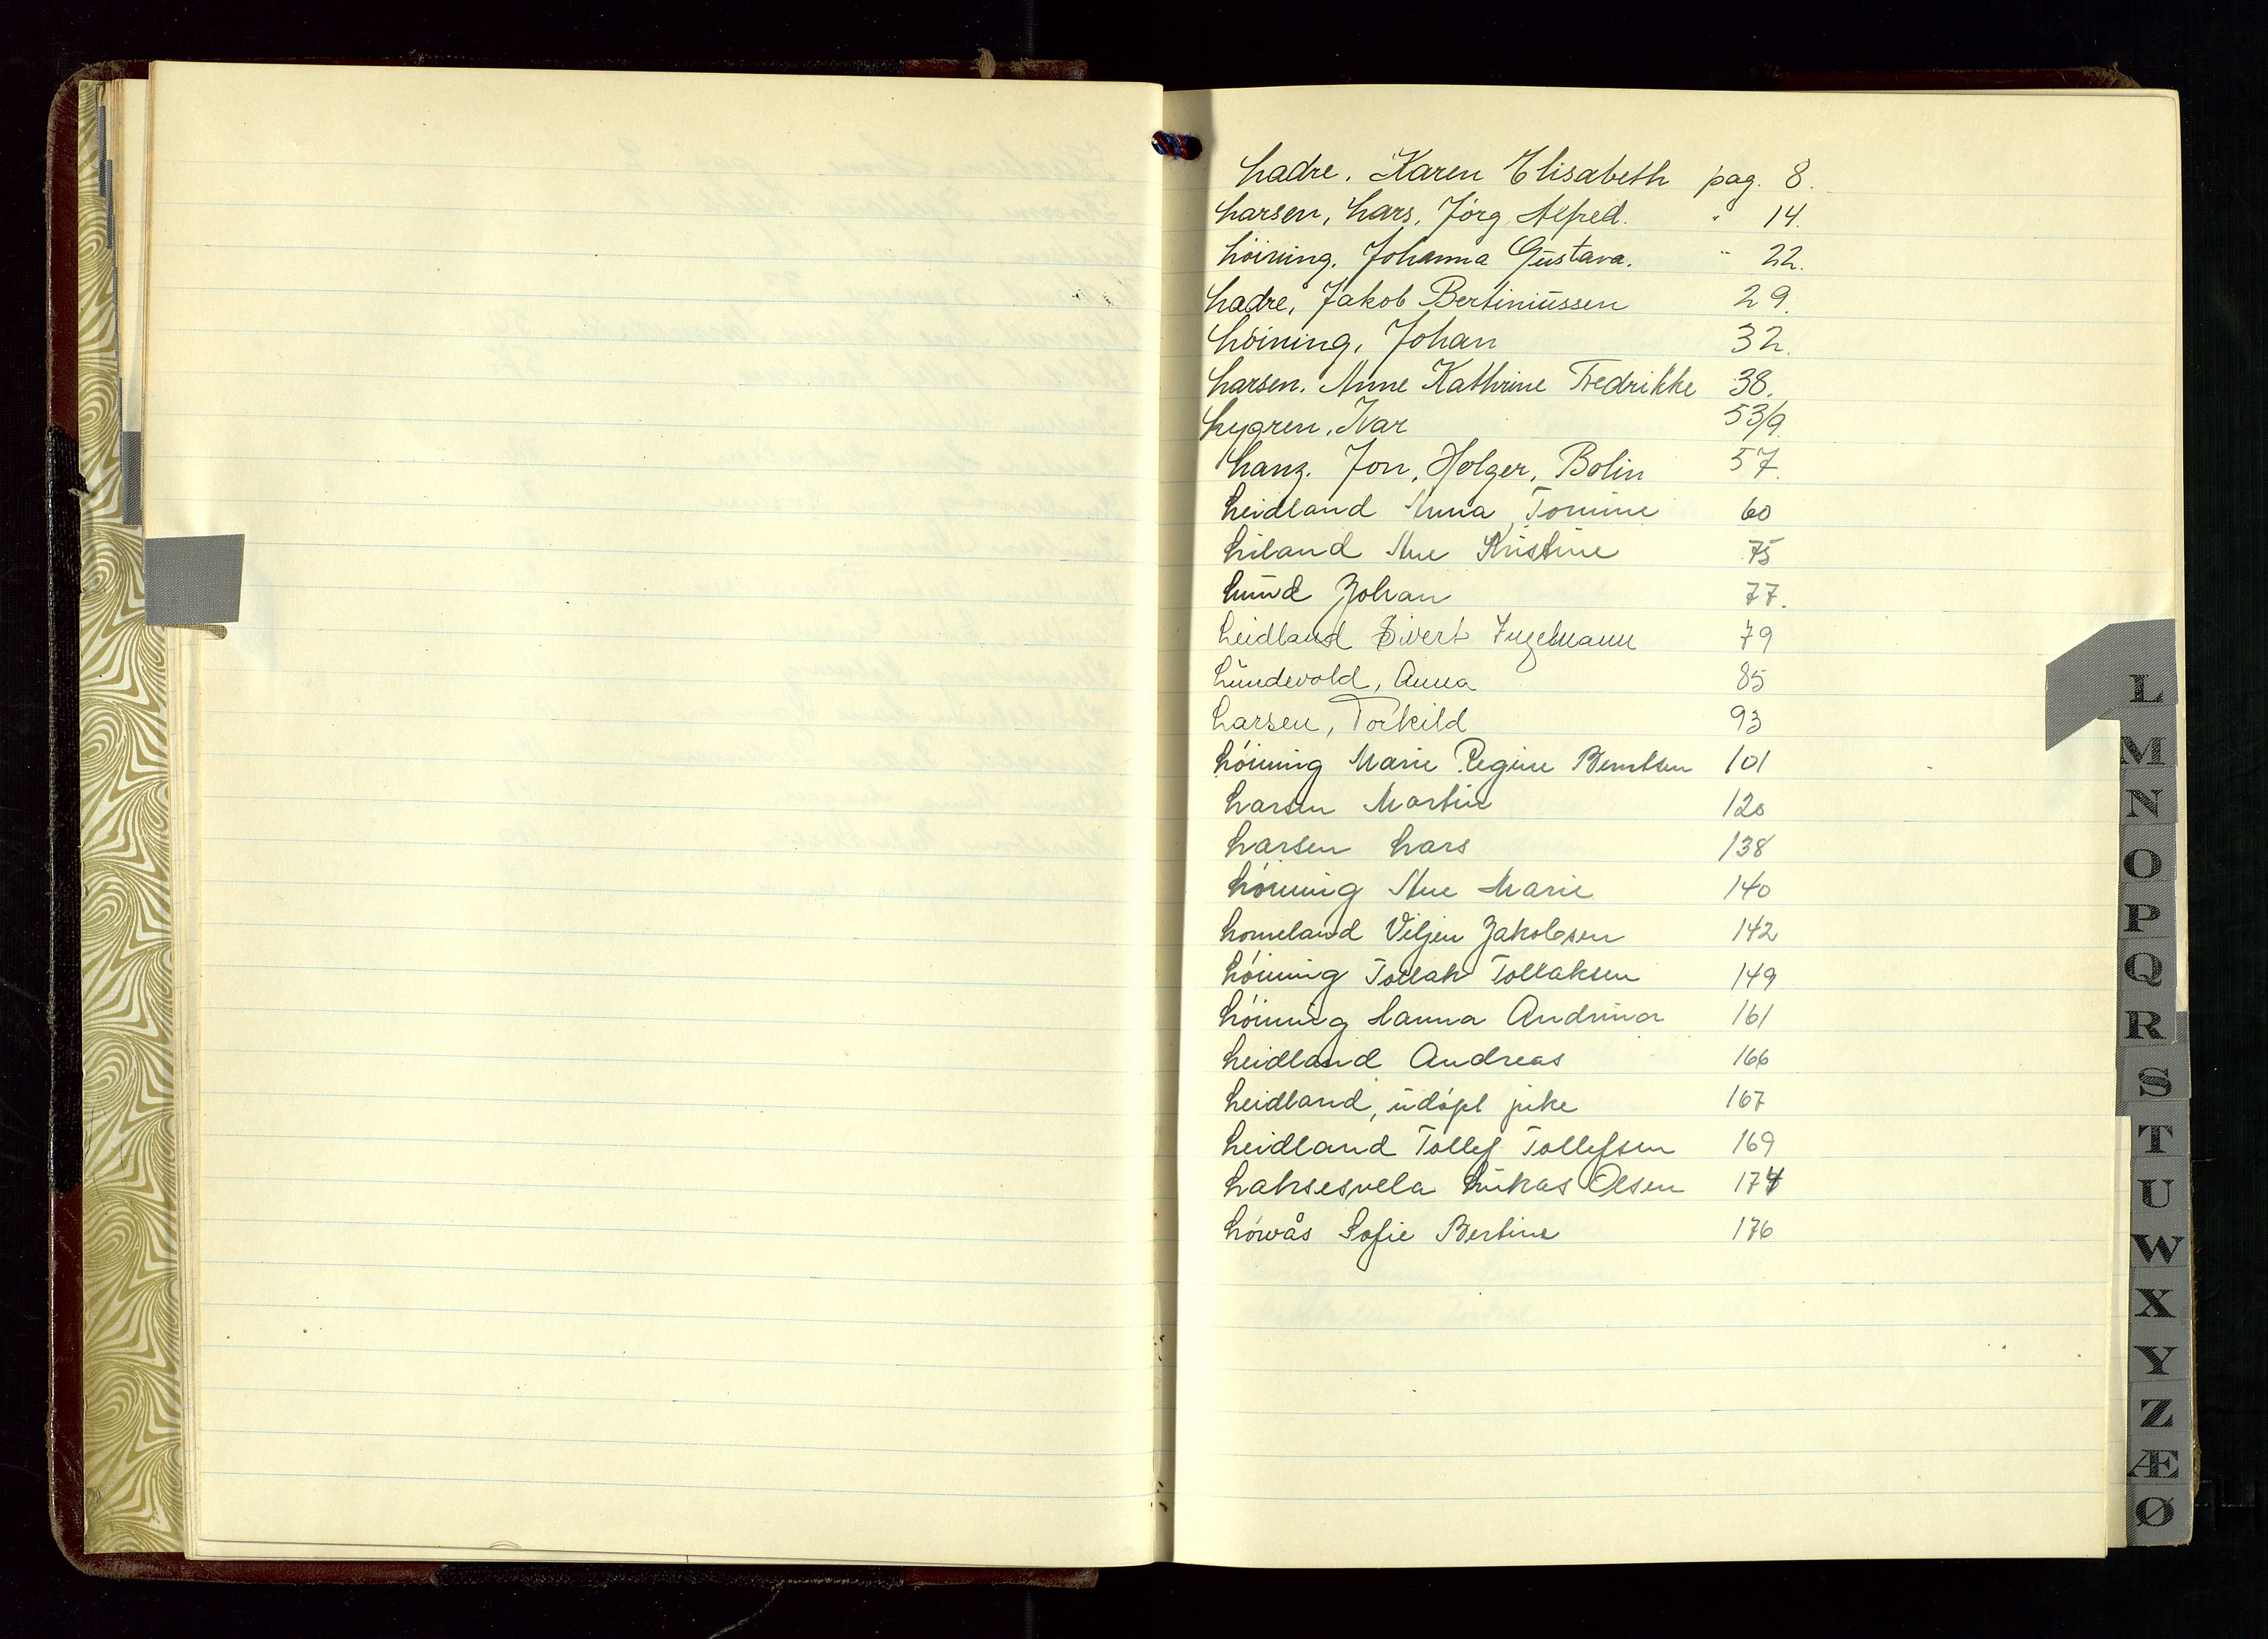 Ladre, Karen Elisabeth pag. 8.
Larsen, Lars, Jørg, Alfred. " 14.
Löining, Johanna Gustava. " 22.
Ladre, Jakob Bertiniussen 29.
Löining, Johan 32.
Larsen. Anne Kathrine Fredrikke 38.
Lygren, Ivar 53/9.
Lanz. Jon, Holger, Bolin 57.
Leidland Anna Tomine 60
Liland Ane Kristine 75
Lund Johan 77.
Leidland Sivert Ingelmann 79
Lundevold, Anna 85
Larsen, Torkild 93
Löining Marie Regine Berntsen 101
Larsen Martin 120
Larsen Lars 138
Löining Ane Marie 140
Lomeland Viljen Jakobsen 142
Löining Tollak Tollaksen 149
Löining Hanna Andrina 161
Leidland Andreas 166
Leidland, udöpt pike 167
Leidland Tollef Tollefsen 169
Laksesvela Lukas Olsen 174
Lövås Sofie Bertine 176
L
M
N
O
P
Q
R
S
T
U
W
X
Y
Z
Æ
Ø